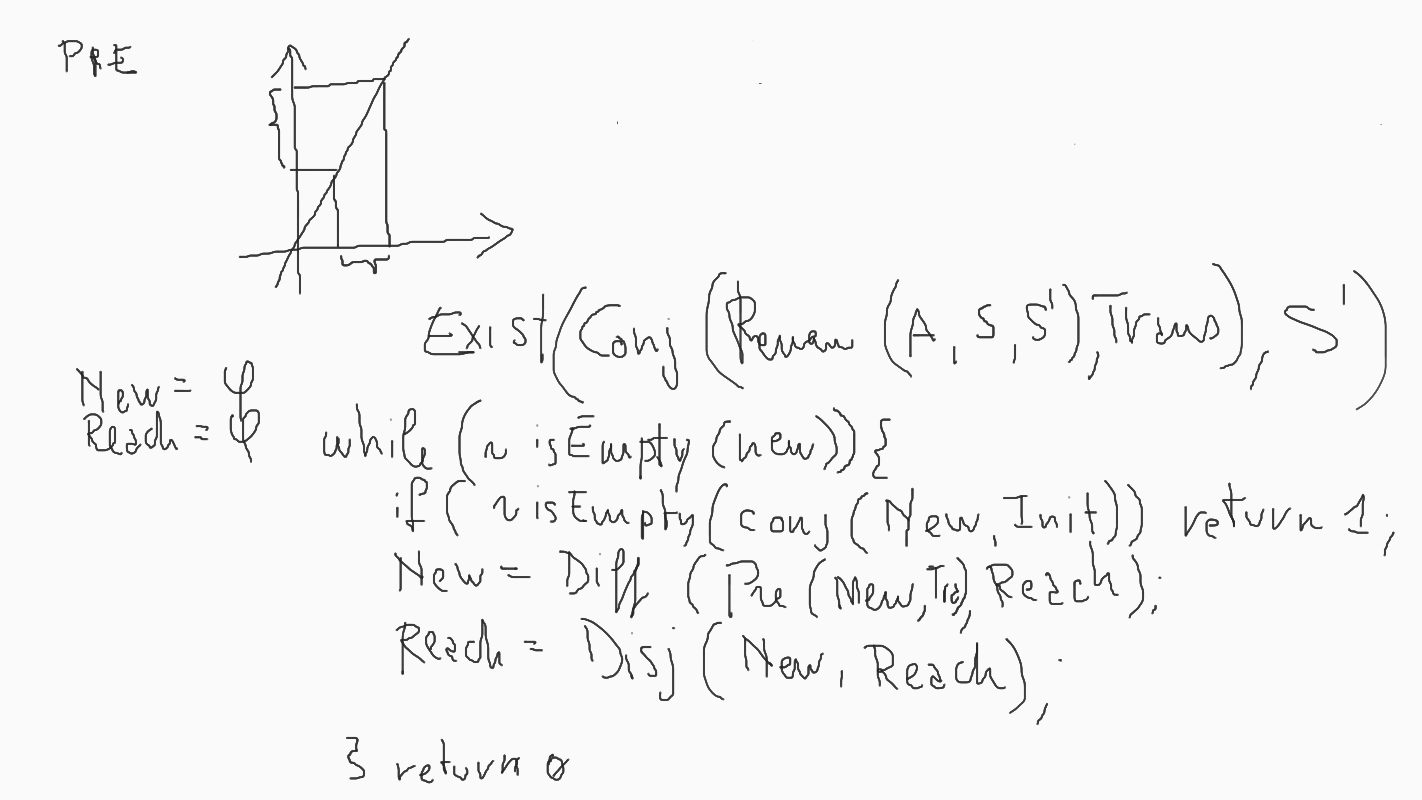 PRE
Exist(Conj(Renam(A, S, S'), Trans), S')
New = φ
Reach = φ
while (~ isEmpty(new)){
if ( ~isEmpty(conj(New, Init)) return 1;
New = Diff (Pre(New, Tra), Reach);
Reach = Disj(New, Reach);
} return 0